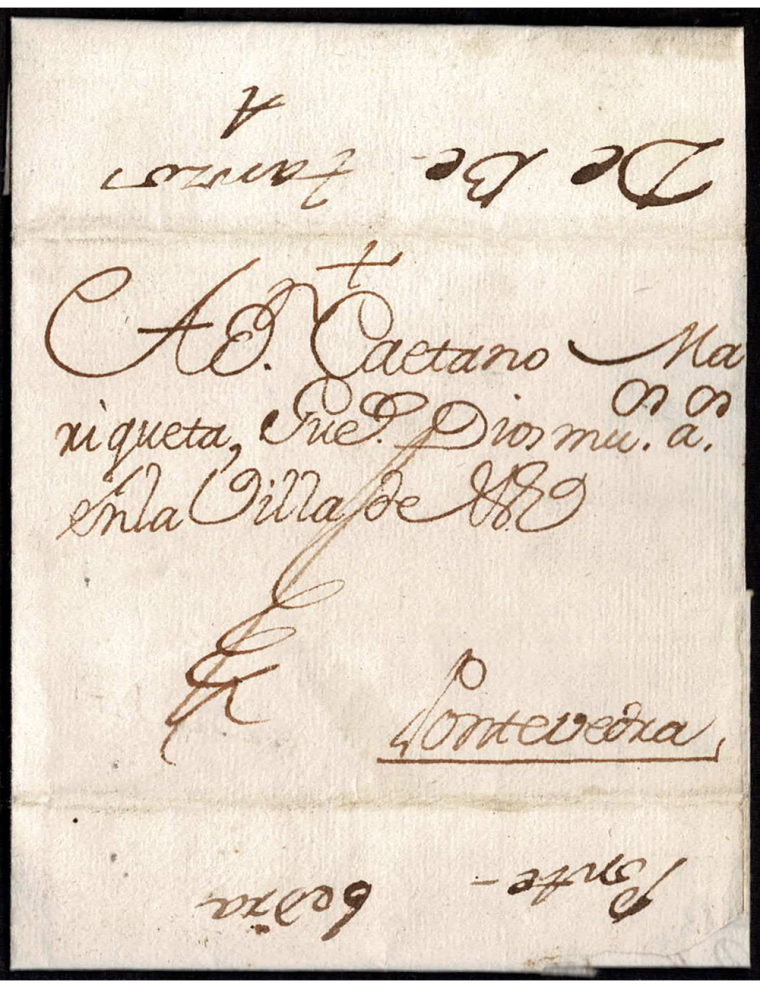 De Be-
tanzos
A
+
A D.n Caetano Ma
riqueta, Gue. Dios mu.s a.s
En la Villa de
Pontevedra,
Ponte-
bedra